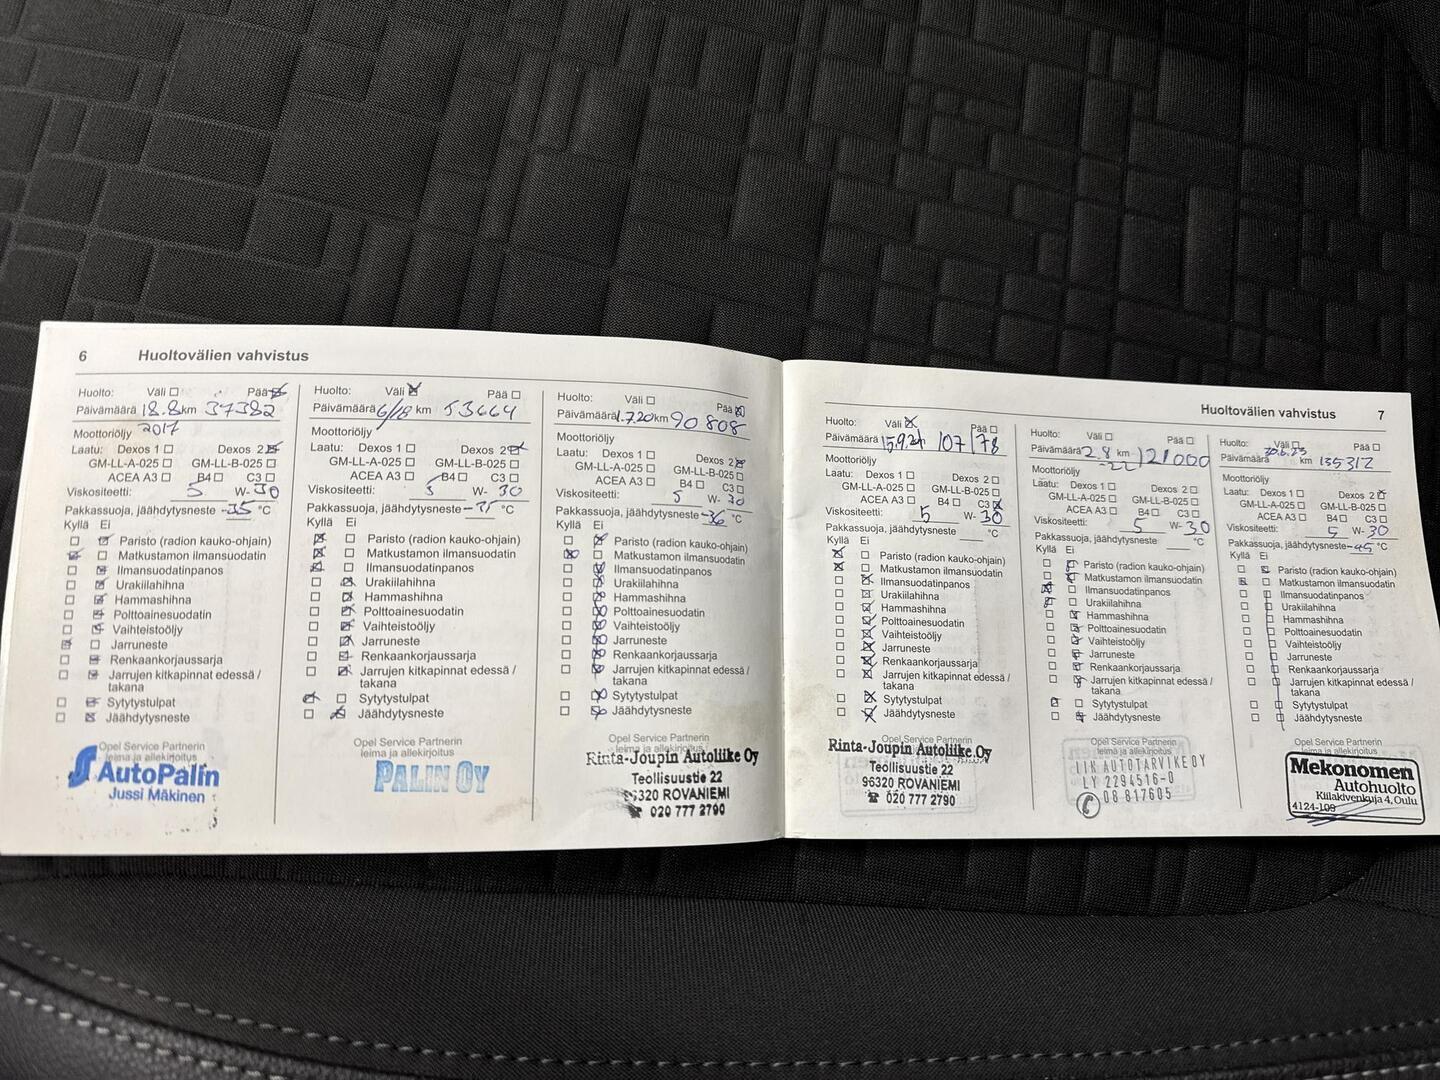 6 Huoltovälien vahvistus
Huolto: Väli Pää
Päivämäärä 18.8 km 37382
2017
Moottoriöljy
Laatu: Dexos 1 Dexos 2
GM-LL-A-025 GM-LL-B-025
ACEA A3 B4 C3
Viskositeetti: 5 W- 30
Pakkassuoja, jäähdytysneste -35 °C
Kyllä Ei
Paristo (radion kauko-ohjain)
Matkustamon ilmansuodatin
Ilmansuodatinpanos
Urakiilahihna
Hammashihna
Polttoainesuodatin
Vaihteistoöljy
Jarruneste
Renkaankorjaussarja
Jarrujen kitkapinnat edessä /
takana
Sytytystulpat
Jäähdytysneste
Opel Service Partnerin
leima ja allekirjoitus
AutoPalin
Jussi Mäkinen
Huolto: Väli Pää
Päivämäärä 6/18 km 53664
Moottoriöljy
Laatu: Dexos 1 Dexos 2
GM-LL-A-025 GM-LL-B-025
ACEA A3 B4 C3
Viskositeetti: 5 W- 30
Pakkassuoja, jäähdytysneste °C
Kyllä Ei
Paristo (radion kauko-ohjain)
Matkustamon ilmansuodatin
Ilmansuodatinpanos
Urakiilahihna
Hammashihna
Polttoainesuodatin
Vaihteistoöljy
Jarruneste
Renkaankorjaussarja
Jarrujen kitkapinnat edessä /
takana
Sytytystulpat
Jäähdytysneste
Opel Service Partnerin
leima ja allekirjoitus
PALIN OY
Huolto: Väli Pää
Päivämäärä 1.7.20 km 90808
Moottoriöljy
Laatu: Dexos 1 Dexos 2
GM-LL-A-025 GM-LL-B-025
ACEA A3 B4 C3
Viskositeetti: 5 W- 30
Pakkassuoja, jäähdytysneste -36 °C
Kyllä Ei
Paristo (radion kauko-ohjain)
Matkustamon ilmansuodatin
Ilmansuodatinpanos
Urakiilahihna
Hammashihna
Polttoainesuodatin
Vaihteistoöljy
Jarruneste
Renkaankorjaussarja
Jarrujen kitkapinnat edessä /
takana
Sytytystulpat
Jäähdytysneste
Opel Service Partnerin
leima ja allekirjoitus
Rinta-Joupin Autoliike Oy
Teollisuustie 22
96320 ROVANIEMI
☎ 020 777 2790
Huoltovälien vahvistus 7
Huolto: Väli Pää
Päivämäärä 15.9.21 107178
Moottoriöljy
Laatu: Dexos 1 Dexos 2
GM-LL-A-025 GM-LL-B-025
ACEA A3 B4 C3
Viskositeetti: 5 W- 30
Pakkassuoja, jäähdytysneste °C
Kyllä Ei
Paristo (radion kauko-ohjain)
Matkustamon ilmansuodatin
Ilmansuodatinpanos
Urakiilahihna
Hammashihna
Polttoainesuodatin
Vaihteistoöljy
Jarruneste
Renkaankorjaussarja
Jarrujen kitkapinnat edessä /
takana
Sytytystulpat
Jäähdytysneste
Opel Service Partnerin
leima ja allekirjoitus
Rinta-Joupin Autoliike Oy
Teollisuustie 22
96320 ROVANIEMI
☎ 020 777 2790
Huolto: Väli Pää
Päivämäärä 2.8 km 121000
-22
Moottoriöljy
Laatu: Dexos 1 Dexos 2
GM-LL-A-025 GM-LL-B-025
ACEA A3 B4 C3
Viskositeetti: 5 W- 30
Pakkassuoja, jäähdytysneste °C
Kyllä Ei
Paristo (radion kauko-ohjain)
Matkustamon ilmansuodatin
Ilmansuodatinpanos
Urakiilahihna
Hammashihna
Polttoainesuodatin
Vaihteistoöljy
Jarruneste
Renkaankorjaussarja
Jarrujen kitkapinnat edessä /
takana
Sytytystulpat
Jäähdytysneste
Opel Service Partnerin
leima ja allekirjoitus
IIN AUTOTARVIKE OY
LY 2294516-0
08 817605
Huolto: Väli Pää
Päivämäärä 30.6.23 km 135312
Moottoriöljy
Laatu: Dexos 1 Dexos 2
GM-LL-A-025 GM-LL-B-025
ACEA A3 B4 C3
Viskositeetti: 5 W- 30
Pakkassuoja, jäähdytysneste -45 °C
Kyllä Ei
Paristo (radion kauko-ohjain)
Matkustamon ilmansuodatin
Ilmansuodatinpanos
Urakiilahihna
Hammashihna
Polttoainesuodatin
Vaihteistoöljy
Jarruneste
Renkaankorjaussarja
Jarrujen kitkapinnat edessä /
takana
Sytytystulpat
Jäähdytysneste
Opel Service Partnerin
leima ja allekirjoitus
Mekonomen
Autohuolto
Kiilakivenkuja 4, Oulu
4124-109